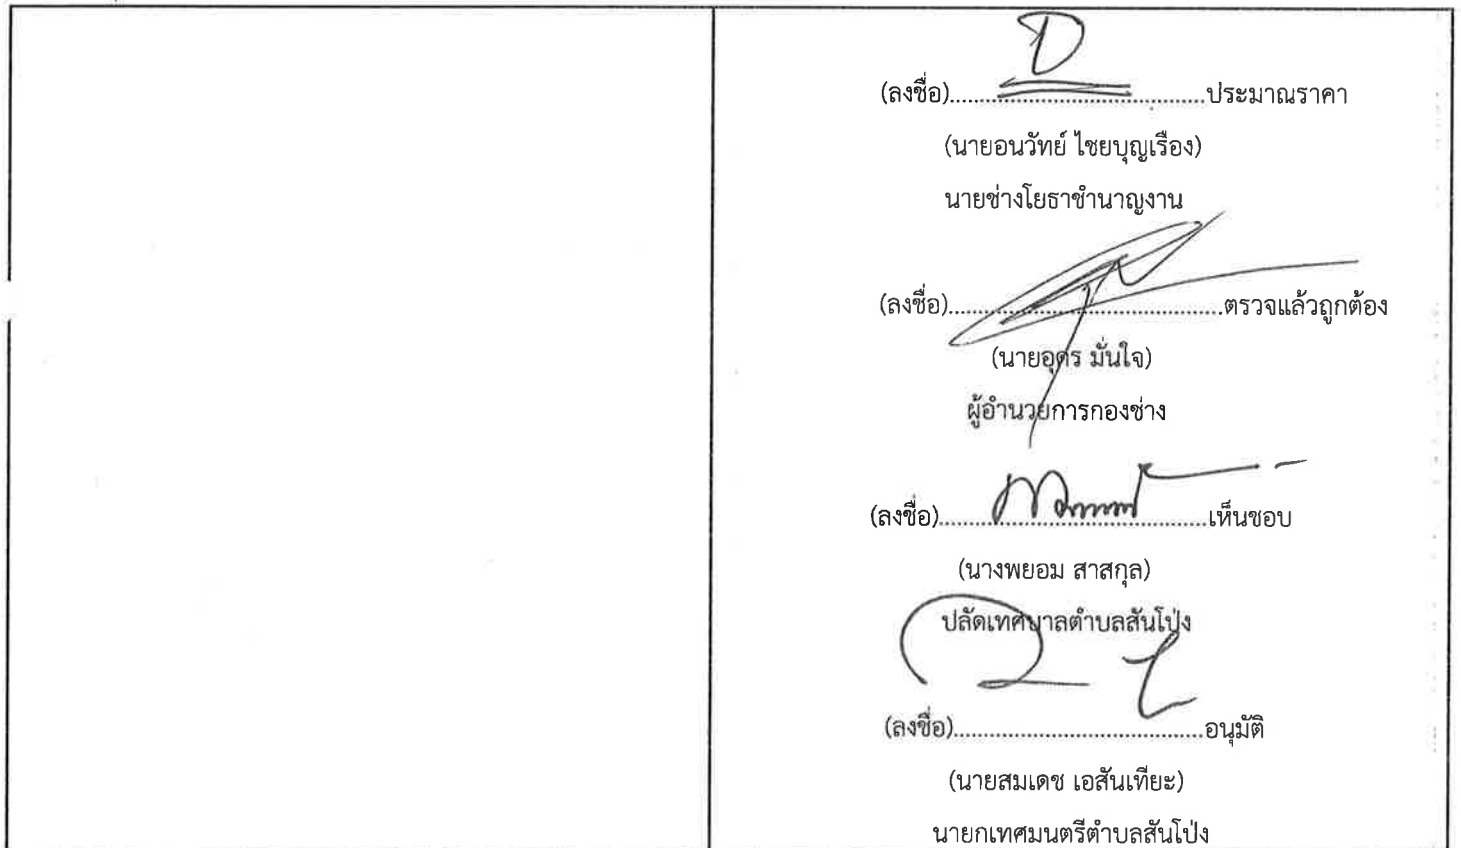 (ลงชื่อ)........................................ประมาณราคา
(นายอนวัทย์ ไชยบุญเรือง)
นายช่างโยธาชำนาญงาน
(ลงชื่อ)...........................................ตรวจแล้วถูกต้อง
(นายอุดร มั่นใจ)
ผู้อำนวยการกองช่าง
(ลงชื่อ)..........................................เห็นชอบ
(นางพยอม สาสกุล)
ปลัดเทศบาลตำบลสันโป่ง
(ลงชื่อ).......................................อนุมัติ
(นายสมเดช เอสันเทียะ)
นายกเทศมนตรีตำบลสันโป่ง